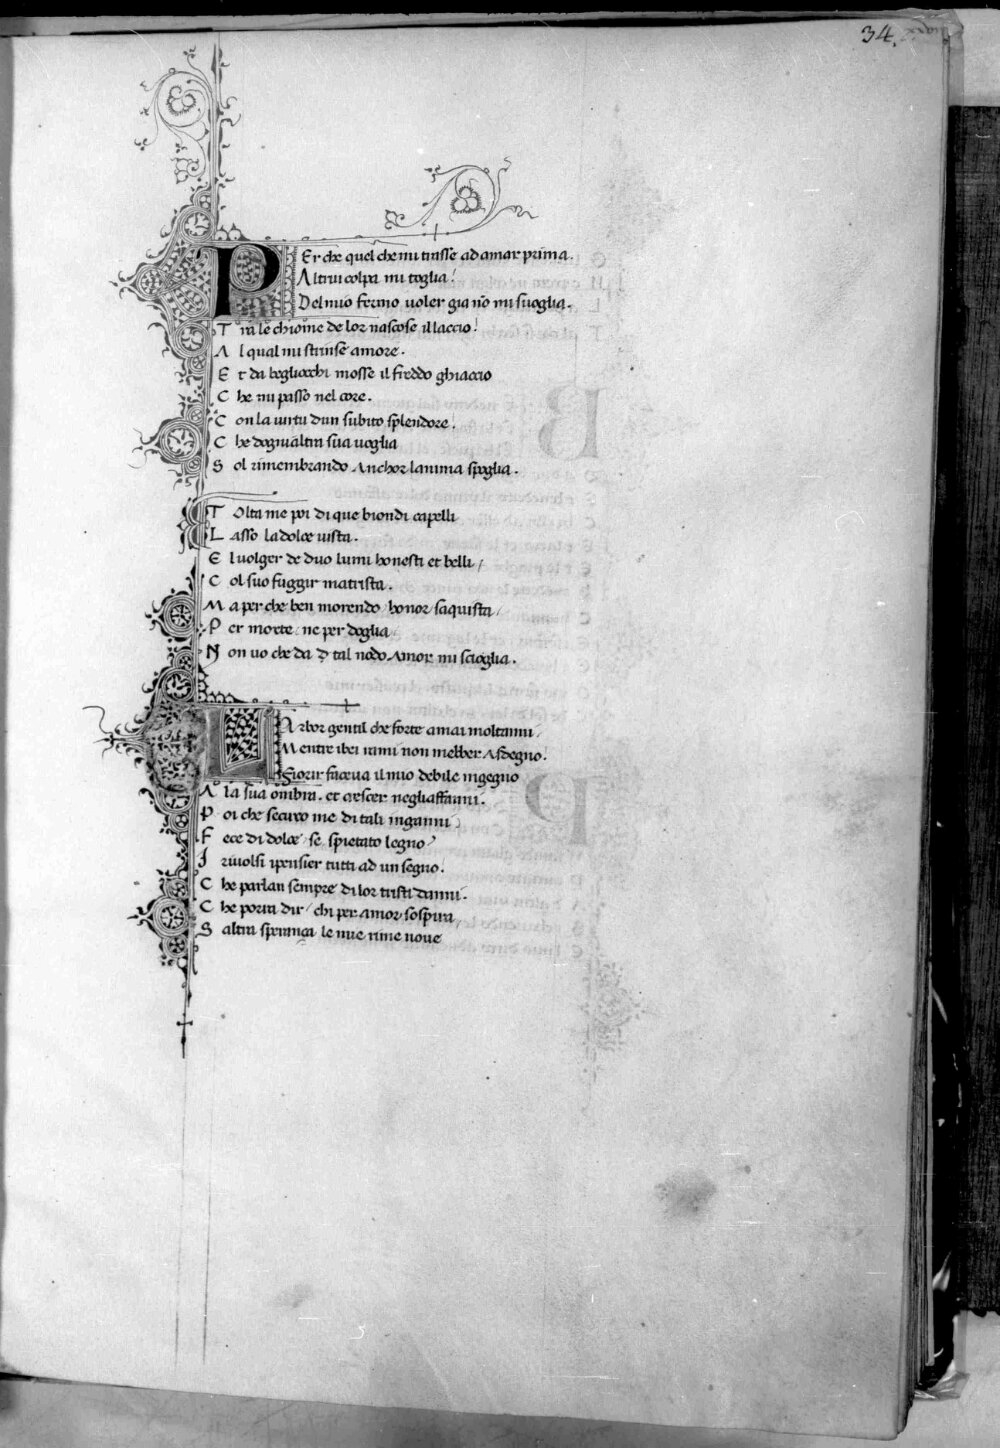 34.
PEr che quel che mi trasse ad amar prima.
Altrui colpa mi toglia!
Del mio fermo uoler gia nõ mi suoglia.
Tra le chiome de lor nascose il laccio!
Al qual mi strinse amore.
Et da begliocchi mosse il freddo ghiaccio
Che mi passo nel core.
Con la uirtu dun subito splendore!
Che dogni altra sua uoglia
Sol rimembrando Anchor lanima spoglia.
Tolta me poi di que biondi capelli
Lasso la dolce uista.
El uolger de duo lumi honesti et belli/
Col suo fuggir matrista.
Ma per che ben morendo/honor saquista/
Per morte/ne per doglia/
Non uo che da tal nodo Amor mi scioglia.
LArbor gentil che forte amai moltanni/
Mentre ibei rami non mebber Asdegno!
Fiorir faceua il mio debile ingegno
A la sua ombra. et crescer negliaffanni.
Poi che securo me di tali inganni/
Fece di dolce/se spietato legno/
I riuolsi ipensier tutti ad un segno!
Che parlan sempre di lor tristi danni.
Che porra dir/chi per amor sospira/
Saltra speranza le mie rime noue